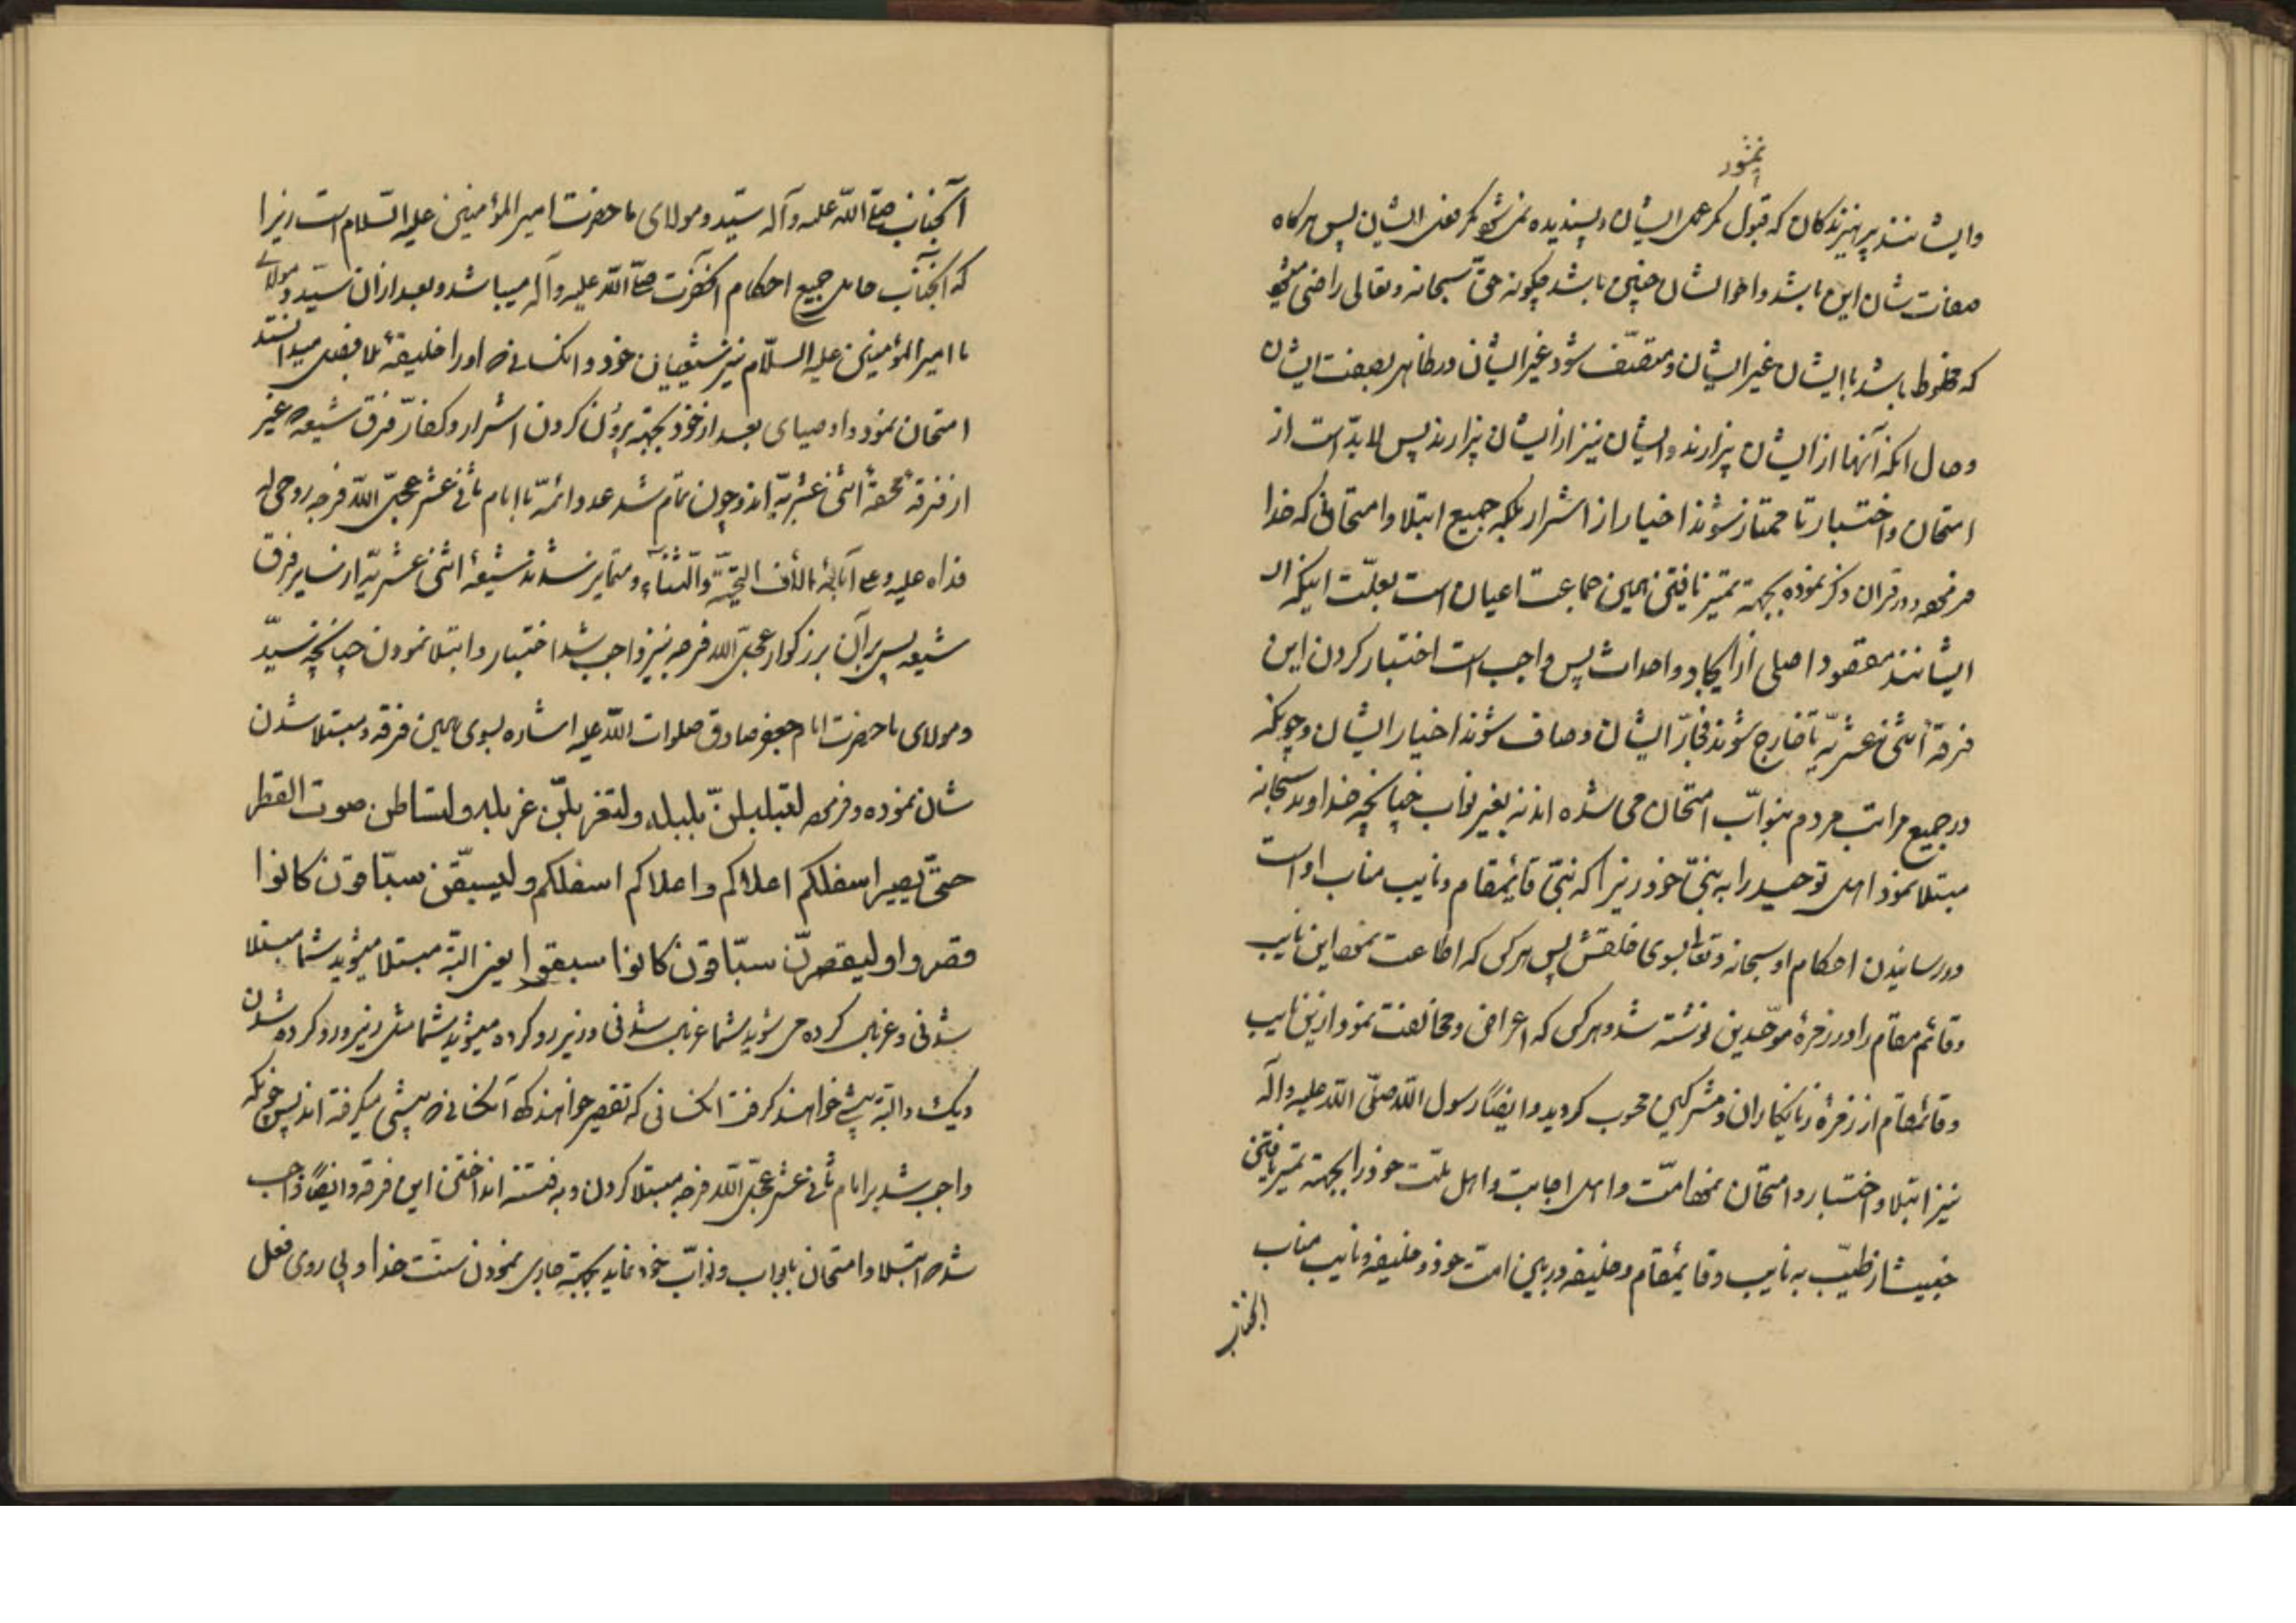 نمیشود
وایشانند پرهیزندکان که قبول مکر عمل ایشان و پسندیده نمیشود مکر فعل ایشان پس هرکاه
صفات شان این باشد و احوالشان چنین باشد چکونه حقّ سبحانه و تعالی راضی میشود
که مخلوط باشد باایشان غیر ایشان و متصّف شود غیر ایشان در ظاهر بصفت ایشان
و حال انکه آنها از ایشان بیزارند و ایشان نیز از ایشان بیزارند پس لابدّ است از
امتحان و اختبار تا ممتاز شوند اخیار از اشرار بلکه جمیع ابتلا و امتحانی که خدا
در قران ذکر نموده بجهة تمیز یافتن همین جماعت اعیان است بعلّت اینکه
ایشانند مقصود اصلی از ایجاد و احداث پس واجب است اختبار کردن این
فرقهٔ اثنی عشریّه تا خارج شوند فجّار ایشان و صاف شوند اخیار ایشان و چونکه
در جمیع مراتب مردم بنوّاب امتحان می شده اند نه بغیر نواب چنانچه خداوند سبحانه
مبتلا نمود اهل توحید را به نبیّ خود زیرا که نبیّ قائیمقام و نایب مناب او است
در رسانیدن احکام او سبحانه و تعا بسوی خلقش پس هرکس که اطاعت نمود این نایب
و قائم مقام را در زمرهٔ موّحدین نوشته شد و هرکس که اعراض و مخالفت نمود ازین نایب
و قائمقام از زمرهٔ زیانکاران و مشرکین محسوب کردید و ایضاً رسول اللّه صلّی اللّه علیه و آله
نیز ابتلا و اختبار و امتحان نمود امّت و اهل اجابت و اهل ملّت خود را بجهة تمیز یافتن
خبیث از طیّب به نایب و قائیمقام و خلیفه در بین امّت خود و خلیفه و نایب مناب
انجناب
آنجناب صلّی اللّه علیه و آله سیّد و مولای ما حضرت امیر المؤمنین علیه السّلام است زیرا
که آنجناب حامل جمیع احکام آنحضرت صلّی اللّه علیه و آله میباشد و بعد از ان سیّد و مولای
ما امیر المؤمنین علیه السلّام نیز شیعیان خود و انکسانی که او را خلیفهٔ بلا فصل میدانستند
امتحان نمود و اوصیای بعد از خود بجهة برون کردن اشرار و کفّار فرق شیعه که غیر
از فرقهٔ محقّهٔ اثنی عشریّه اند و چون تمام شد عدد ائمّه باامام ثانی عشر عجّل اللّه فرجه روحی له
فداه علیه و علی آبائه بالأف التحیّة والثناء و متمایز شدند شیعهٔ اثنی عشریّه از سایر فرق
شیعه پس بر آن بزرکوار عجّل اللّه فرجه نیز واجب شد اختبار و ابتلا نمودن چنانچه سیّد
و مولای ما حضرت امام جعفر صادق صلوات اللّه علیه اشاره بسوی همین فرقه و مبتلا شدن
شان نموده و فرموده لتبلبلنّ بلبله و لتغربلنّ غربله و لتساطن صوت القطر
حتّی یصیر اسفلکم اعلاکم و اعلاکم اسفلکم و لیسبقّن سبّاقون کانوا
قصروا و لیقصرنّ سبّاقون کانوا سبقوا یعنی البتّه مبتلا میشوید شما مبتلا
شدنی و غربال کرده می شوید شما غربال شدنی و زیر رو کرده میشوید شما مثل زیر و رو کرده شدن
دیک و البتّه پیشی خواهند کرفت انکسانی که تقصیر آنکسانی که پیشی میکرفته اند پس چونکه
واجب شد بر امام ثانی عشر عجّل اللّه فرجه مبتلا کردن و به فتنه انداختن این فرقه و ایضاً واجب
شد که ابتلا و امتحان بابواب و نوّاب خود نماید بجهة جاری نمودن سنّت خدا و پی روی فعل